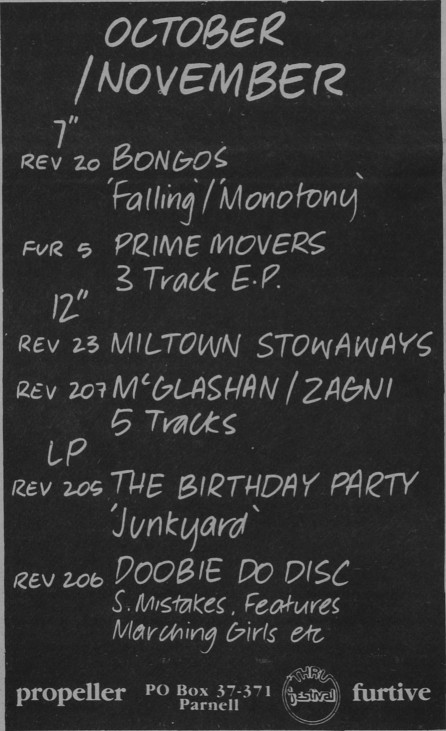 OCTOBER
/NOVEMBER
7"
REV 20 BONGOS
'Falling'/'Monotony'
FUR 5 PRIME MOVERS
3 Track E.P.
12"
REV 23 MILTOWN STOWAWAYS
REV 207 McGLASHAN/ZAGNI
5 Tracks
LP
REV 205 THE BIRTHDAY PARTY
'Junkyard'
REV 206 DOOBIE DO DISC
S. Mistakes, Features
Marching Girls etc
propeller PO Box 37-371 THRU furtive
Parnell festival